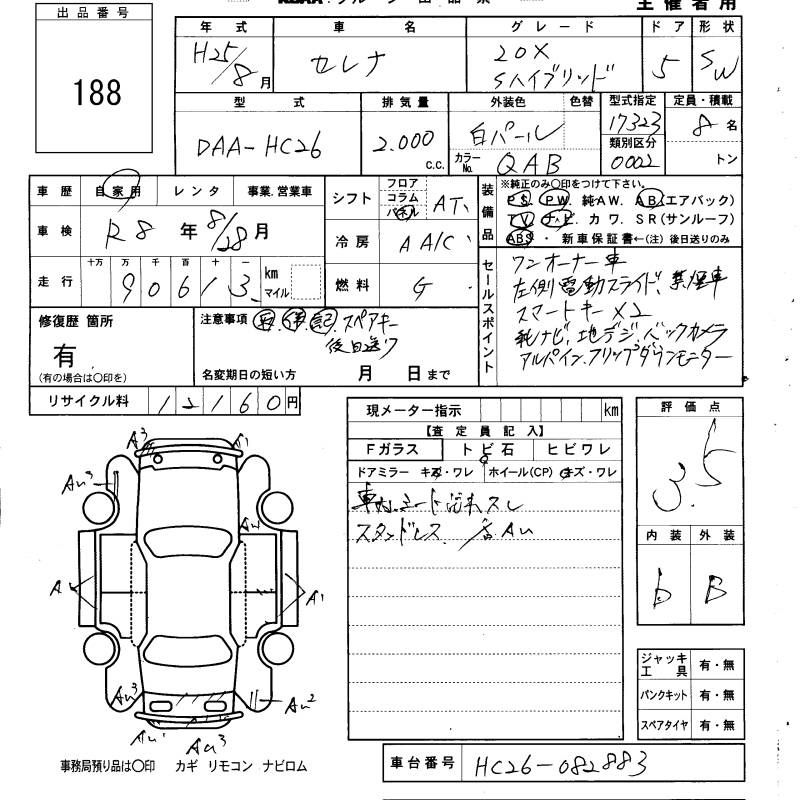 主催者用
出品番号
188
年式 車名 グレード ドア 形状
H25/8月 セレナ 20X Sハイブリッド 5 SW
型式 排気量 外装色 色替 型式指定 定員・積載
DAA-HC26 2.000 c.c. 白パール 17323 8名
カラーNo. QAB 類別区分 0002 トン
車歴 自家用 レンタ 事業.営業車
車検 R8年8/28月
走行 十万 万 千 百 十 一
90613 km マイル
シフト フロア コラム パネル AT
冷房 AAC
燃料 G
装備品 ※純正のみ〇印をつけて下さい。
PS PW 純AW. AB(エアバック)
TV ナビ カワ SR(サンルーフ)
ABS ・ 新車保証書←(注) 後日送りのみ
セールスポイント
ワンオーナー車
左側電動スライド、禁煙車
スマートキー×2
純ナビ、地デジ、バックカメラ
アルパイン.フリップダウンモニター
修復歴 箇所
有
(有の場合は〇印を)
注意事項 取.保.記.スペアキー
後日送り
名変期日の短い方 月 日まで
リサイクル料 12160円
現メーター指示 km
【査定員記入】
Fガラス トビ石 ヒビワレ
ドアミラー キズ・ワレ ホイール(CP) キズ・ワレ
車内、シート汚れスレ
スタッドレス
評価点
3.5
内装 外装
b B
A3 A1
Au3
AW
A A1
Au3 Au2
Au1 Au3
ジャッキ工具 有・無
パンクキット 有・無
スペアタイヤ 有・無
事務局預り品は〇印 カギ リモコン ナビロム
車台番号 HC26-082883